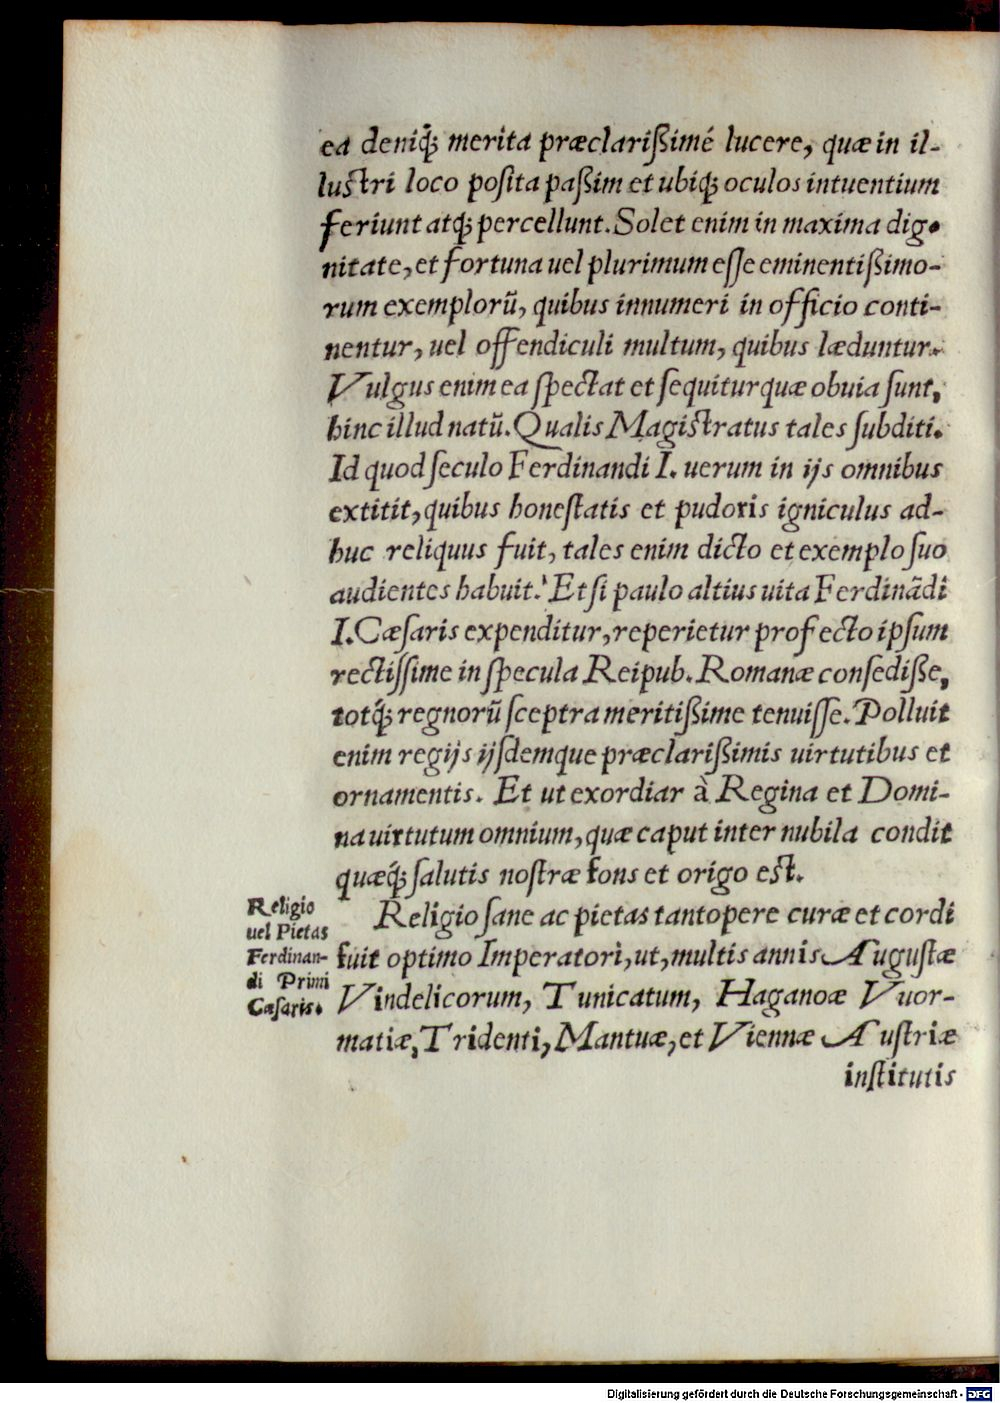 ea deniq́; merita præclarißimé lucere, quæ in il-
luſtri loco poſita paßim et ubiq; oculos intuentium
feriunt atq; percellunt. Solet enim in maxima dig-
nitate, et fortuna uel plurimum eſſe eminentißimo-
rum exemplorũ, quibus innumeri in officio conti-
nentur, uel offendiculi multum, quibus læduntur.
Vulgus enim ea ſpectat et ſequitur quæ obuia ſunt,
hinc illud natũ. Qualis Magiſtratus tales ſubditi.
Id quod ſeculo Ferdinandi I. uerum in ijs omnibus
extitit, quibus honeſtatis et pudoris igniculus ad-
huc reliquus fuit, tales enim dicto et exemplo ſuo
audientes habuit. Et ſi paulo altius uita Ferdinãdi
I. Cæſaris expenditur, reperietur profecto ipſum
rectiſſime in ſpecula Reipub. Romanæ conſediße,
totq́; regnorũ ſceptra meritißime tenuiſſe. Polluit
enim regijs ijſdemque præclarißimis uirtutibus et
ornamentis. Et ut exordiar à Regina et Domi-
na uirtutum omnium, quæ caput inter nubila condit
quæq́; ſalutis noſtræ fons et origo eſt.
Religio
uel Pietas
Ferdinan-
di Primi
Cæſaris.
Religio ſane ac pietas tantopere curæ et cordi
fuit optimo Imperatori, ut, multis annis Auguſtæ
Vindelicorum, Tunicatum, Haganoæ Vuor-
matiæ, Tridenti, Mantuæ, et Viennæ Auſtriæ
inſtitutis
Digitalisierung gefördert durch die Deutsche Forschungsgemeinschaft - DFG